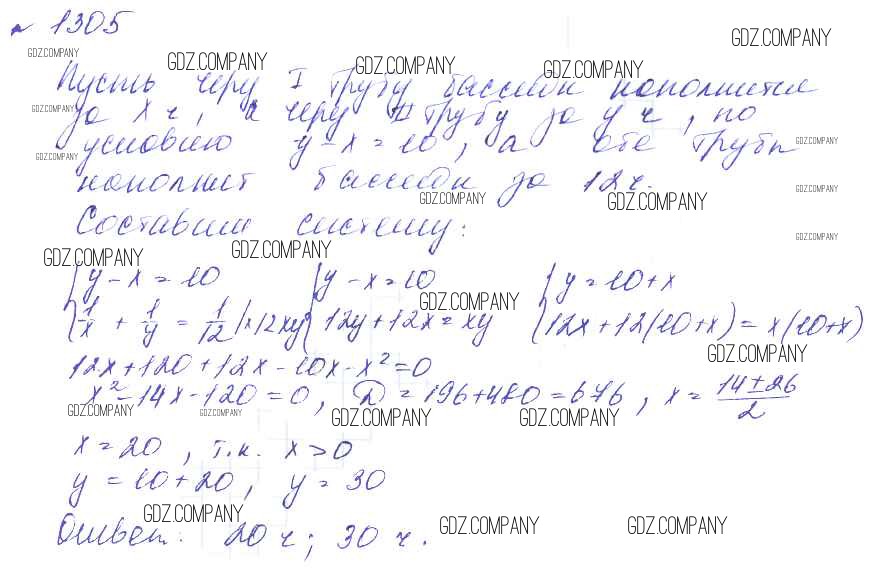 № 1305
GDZ.COMPANY GDZ.COMPANY GDZ.COMPANY GDZ.COMPANY GDZ.COMPANY
Пусть через I трубу бассейн наполнится
GDZ.COMPANY
за x ч, а через II трубу за y ч, по
GDZ.COMPANY GDZ.COMPANY
условию y - x = 10, а обе трубы
наполнят бассейн за 12 ч.
GDZ.COMPANY GDZ.COMPANY GDZ.COMPANY
Составим систему:
GDZ.COMPANY GDZ.COMPANY GDZ.COMPANY
{ y - x = 10 { y - x = 10 { y = 10 + x
GDZ.COMPANY
{ 1/x + 1/y = 1/12 | × 12xy { 12y + 12x = xy { 12x + 12(10+x) = x(10+x)
GDZ.COMPANY
12x + 120 + 12x - 10x - x² = 0
x² - 14x - 120 = 0, D = 196 + 480 = 676, x = 14 ± 26 / 2
GDZ.COMPANY GDZ.COMPANY GDZ.COMPANY GDZ.COMPANY
x = 20, т.к. x > 0
y = 10 + 20, y = 30
GDZ.COMPANY GDZ.COMPANY GDZ.COMPANY
Ответ: 20 ч; 30 ч.